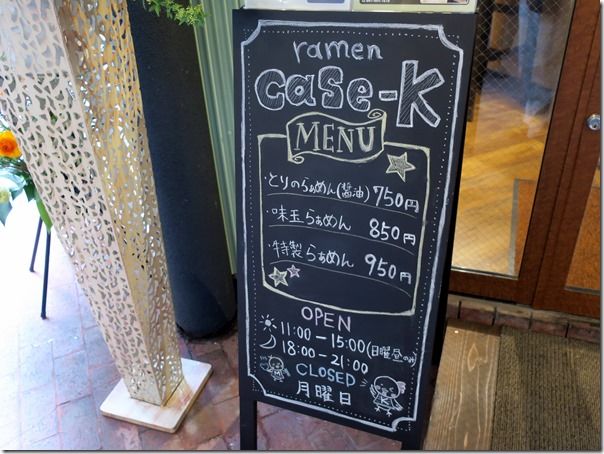 ramen
case-K
MENU
・とりのらぁめん(醤油) 750円
・味玉らぁめん 850円
・特製らぁめん 950円
OPEN
11:00-15:00(日曜昼のみ)
18:00-21:00
CLOSED
月曜日